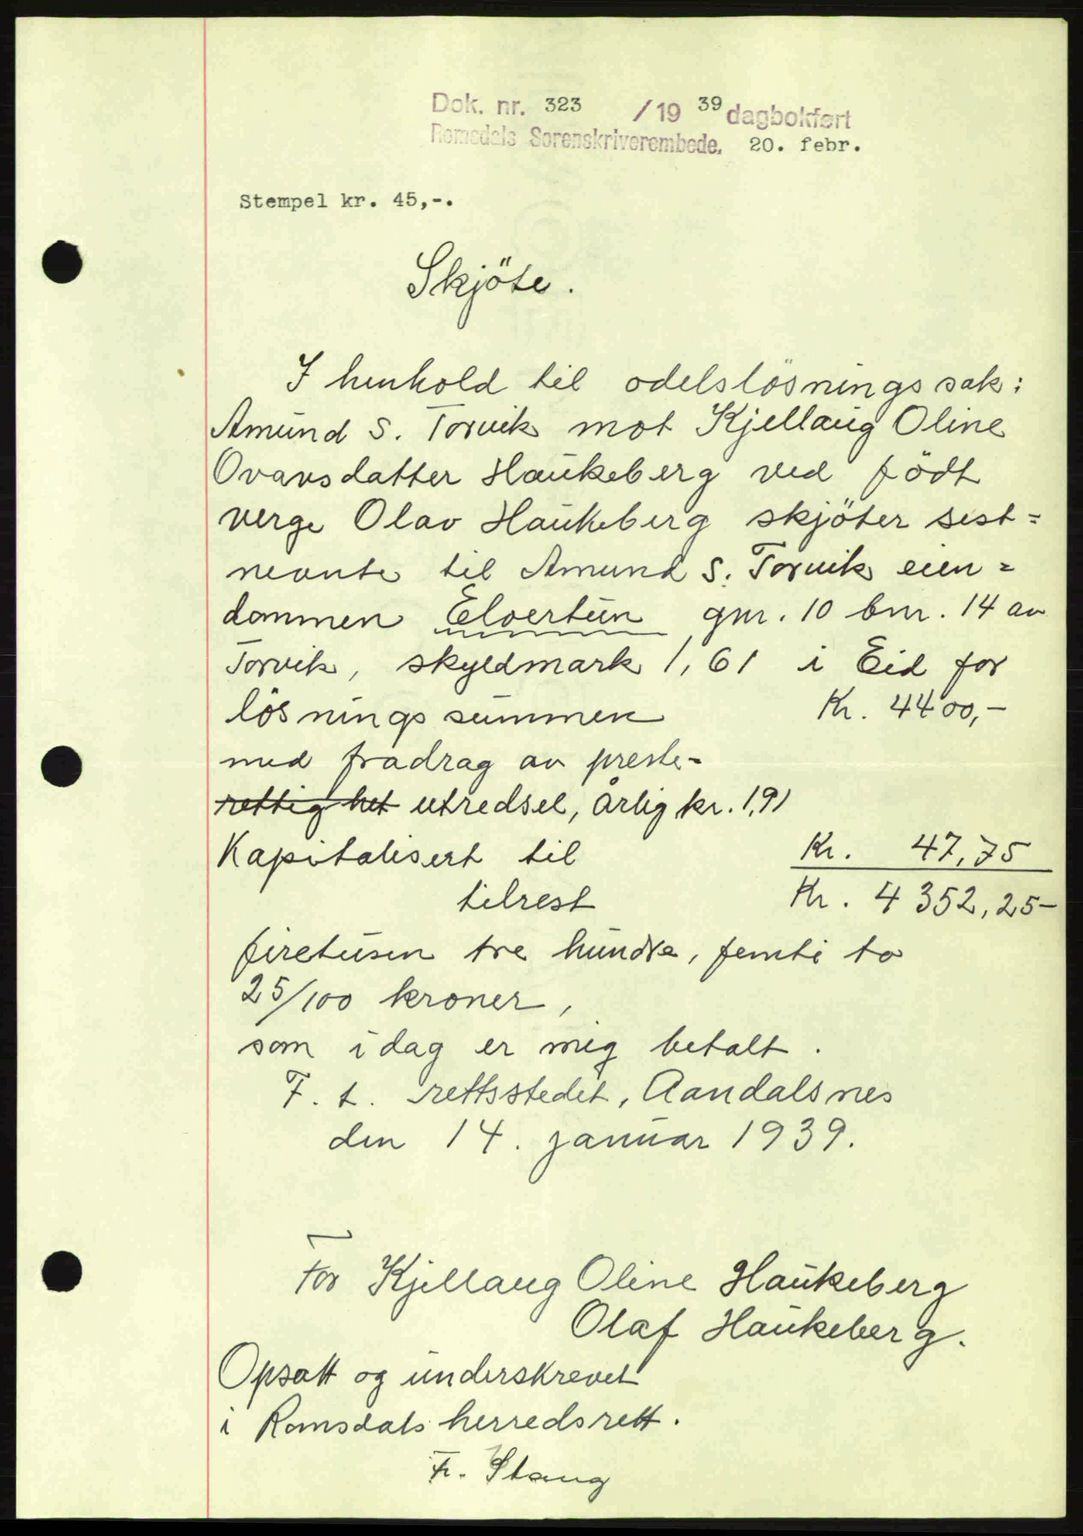 Dok. nr. 323 /19 39 dagbokført
Romsdals Sorenskriverembede. 20. febr.
Stempel kr. 45,-.
Skjöte.
I henhold til odelslösningssak:
Amund S. Torvik mot Kjellaug Oline
Ovarsdatter Haukeberg ved födt
verge Olav Haukeberg skjöter sist=
nevnte til Amund S. Torvik eien=
dommen Elvertun gnr. 10 bnr. 14 av
Torvik, skyldmark 1,61 i Eid for
lösningssummen Kr. 4400,-
med fradrag av preste-
rettighet utredsel, årlig kr. 1,91
Kapitalisert til Kr. 47,75
tilrest Kr. 4 352,25-
firetusen tre hundre, femti to
25/100 kroner,
som i dag er meg betalt.
F. t. rettsstedet, Aandalsnes
den 14. januar 1939.
For Kjellaug Oline Haukeberg
Olaf Haukeberg.
Opsatt og underskrevet
i Romsdals herredsrett.
Fr. Stang